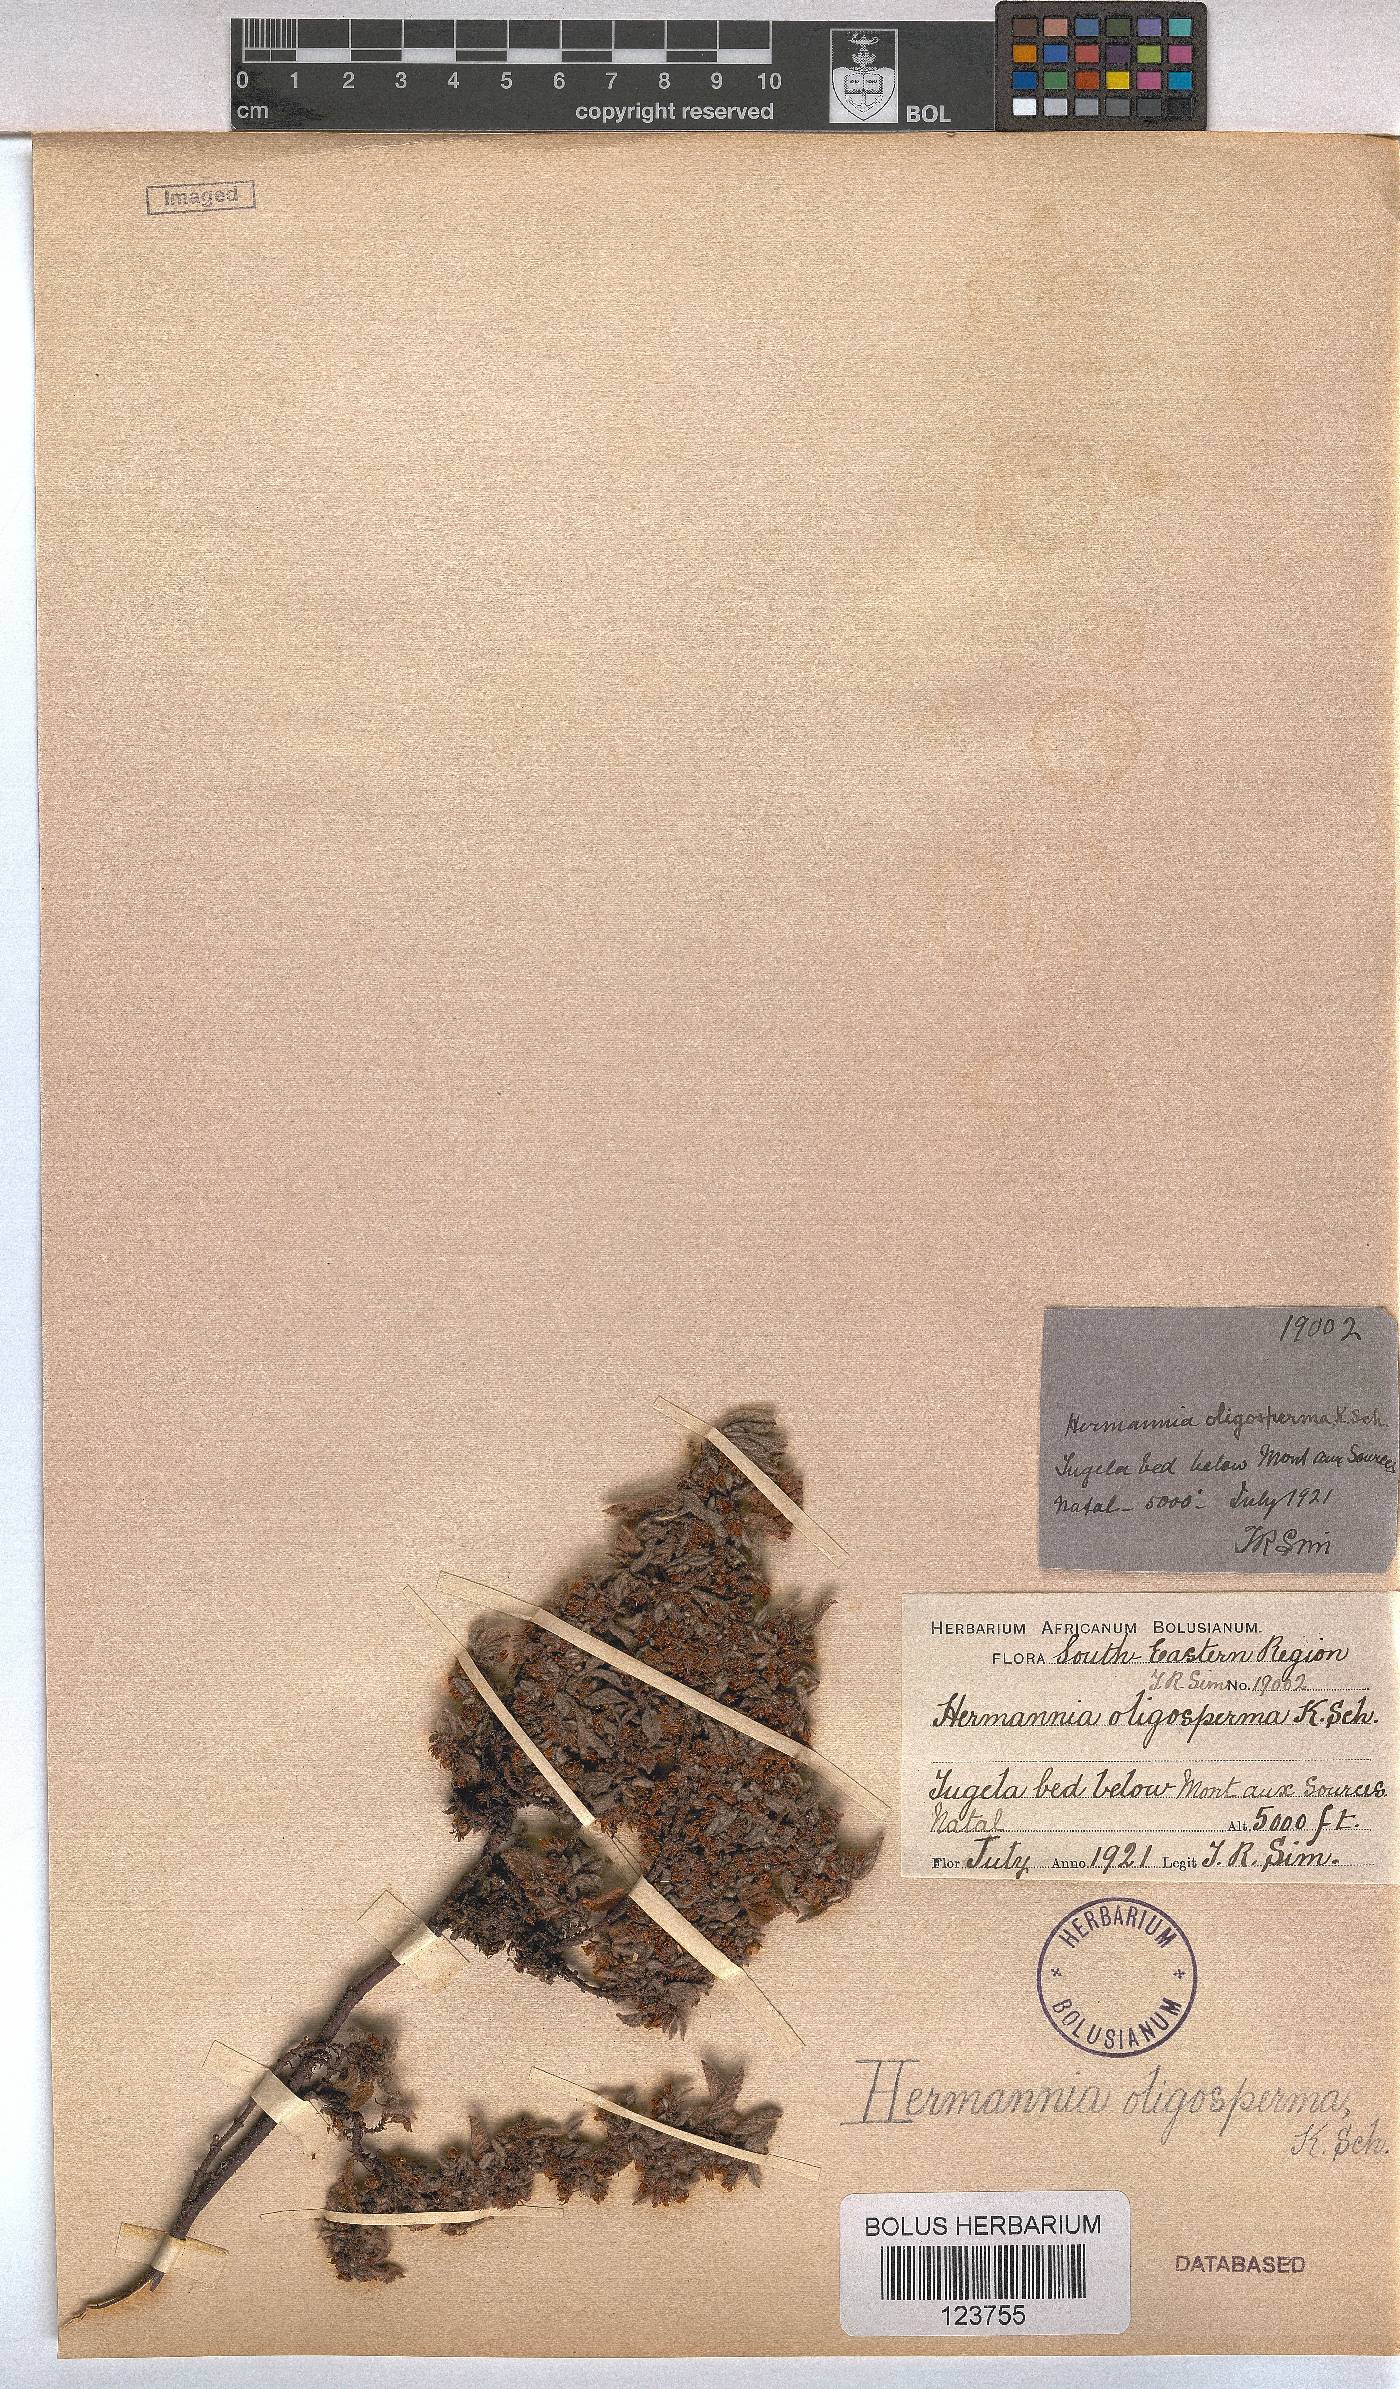 0 1 2 3 4 5 6 7 8 9 10
cm copyright reserved BOL
Imaged
19002
Hermannia oligosperma, K. Sch.
Tugela bed below Mont aux Sources
Natal - 5000' - July 1921
T R Sim
HERBARIUM AFRICANUM BOLUSIANUM.
FLORA South Eastern Region
T R Sim No. 19002
Hermannia oligosperma K. Sch.
Tugela bed below Mont aux Sources
Natal Alt. 5000 ft.
Flor. July Anno 1921 Legit T. R. Sim.
HERBARIUM
BOLUSIANUM
Hermannia oligosperma,
K. Sch.
BOLUS HERBARIUM
123755
DATABASED